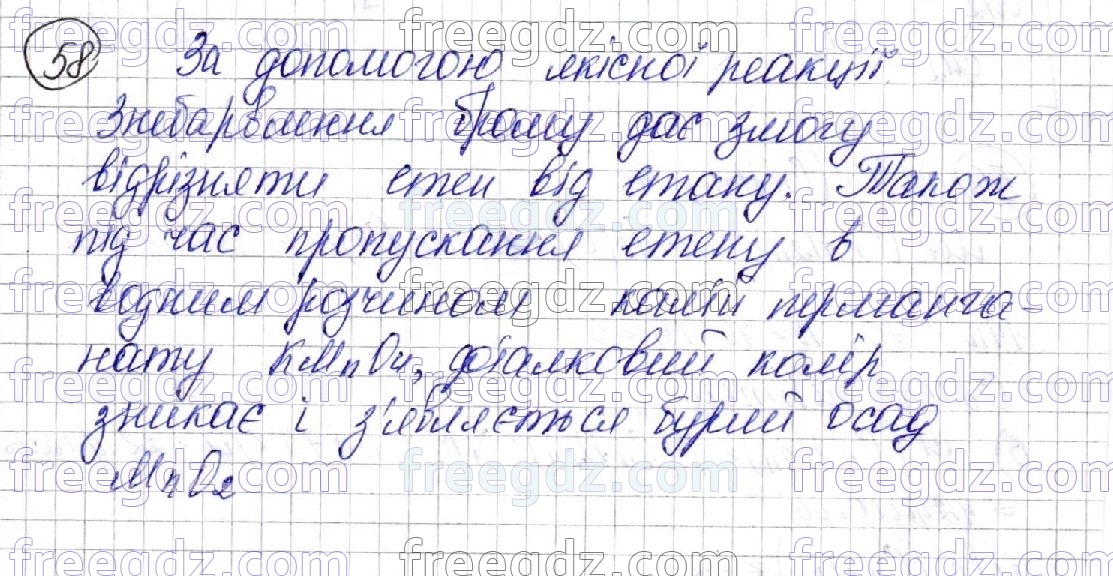 58
За допомогою якісної реакції
Знебарвлення брому дає змогу
відрізняти етен від етану. Також
під час пропускання етену в
водним розчином калій перманга-
нату KMnO4, фіалковий колір
зникає і з'являється бурий осад
MnO2
freegdz.com